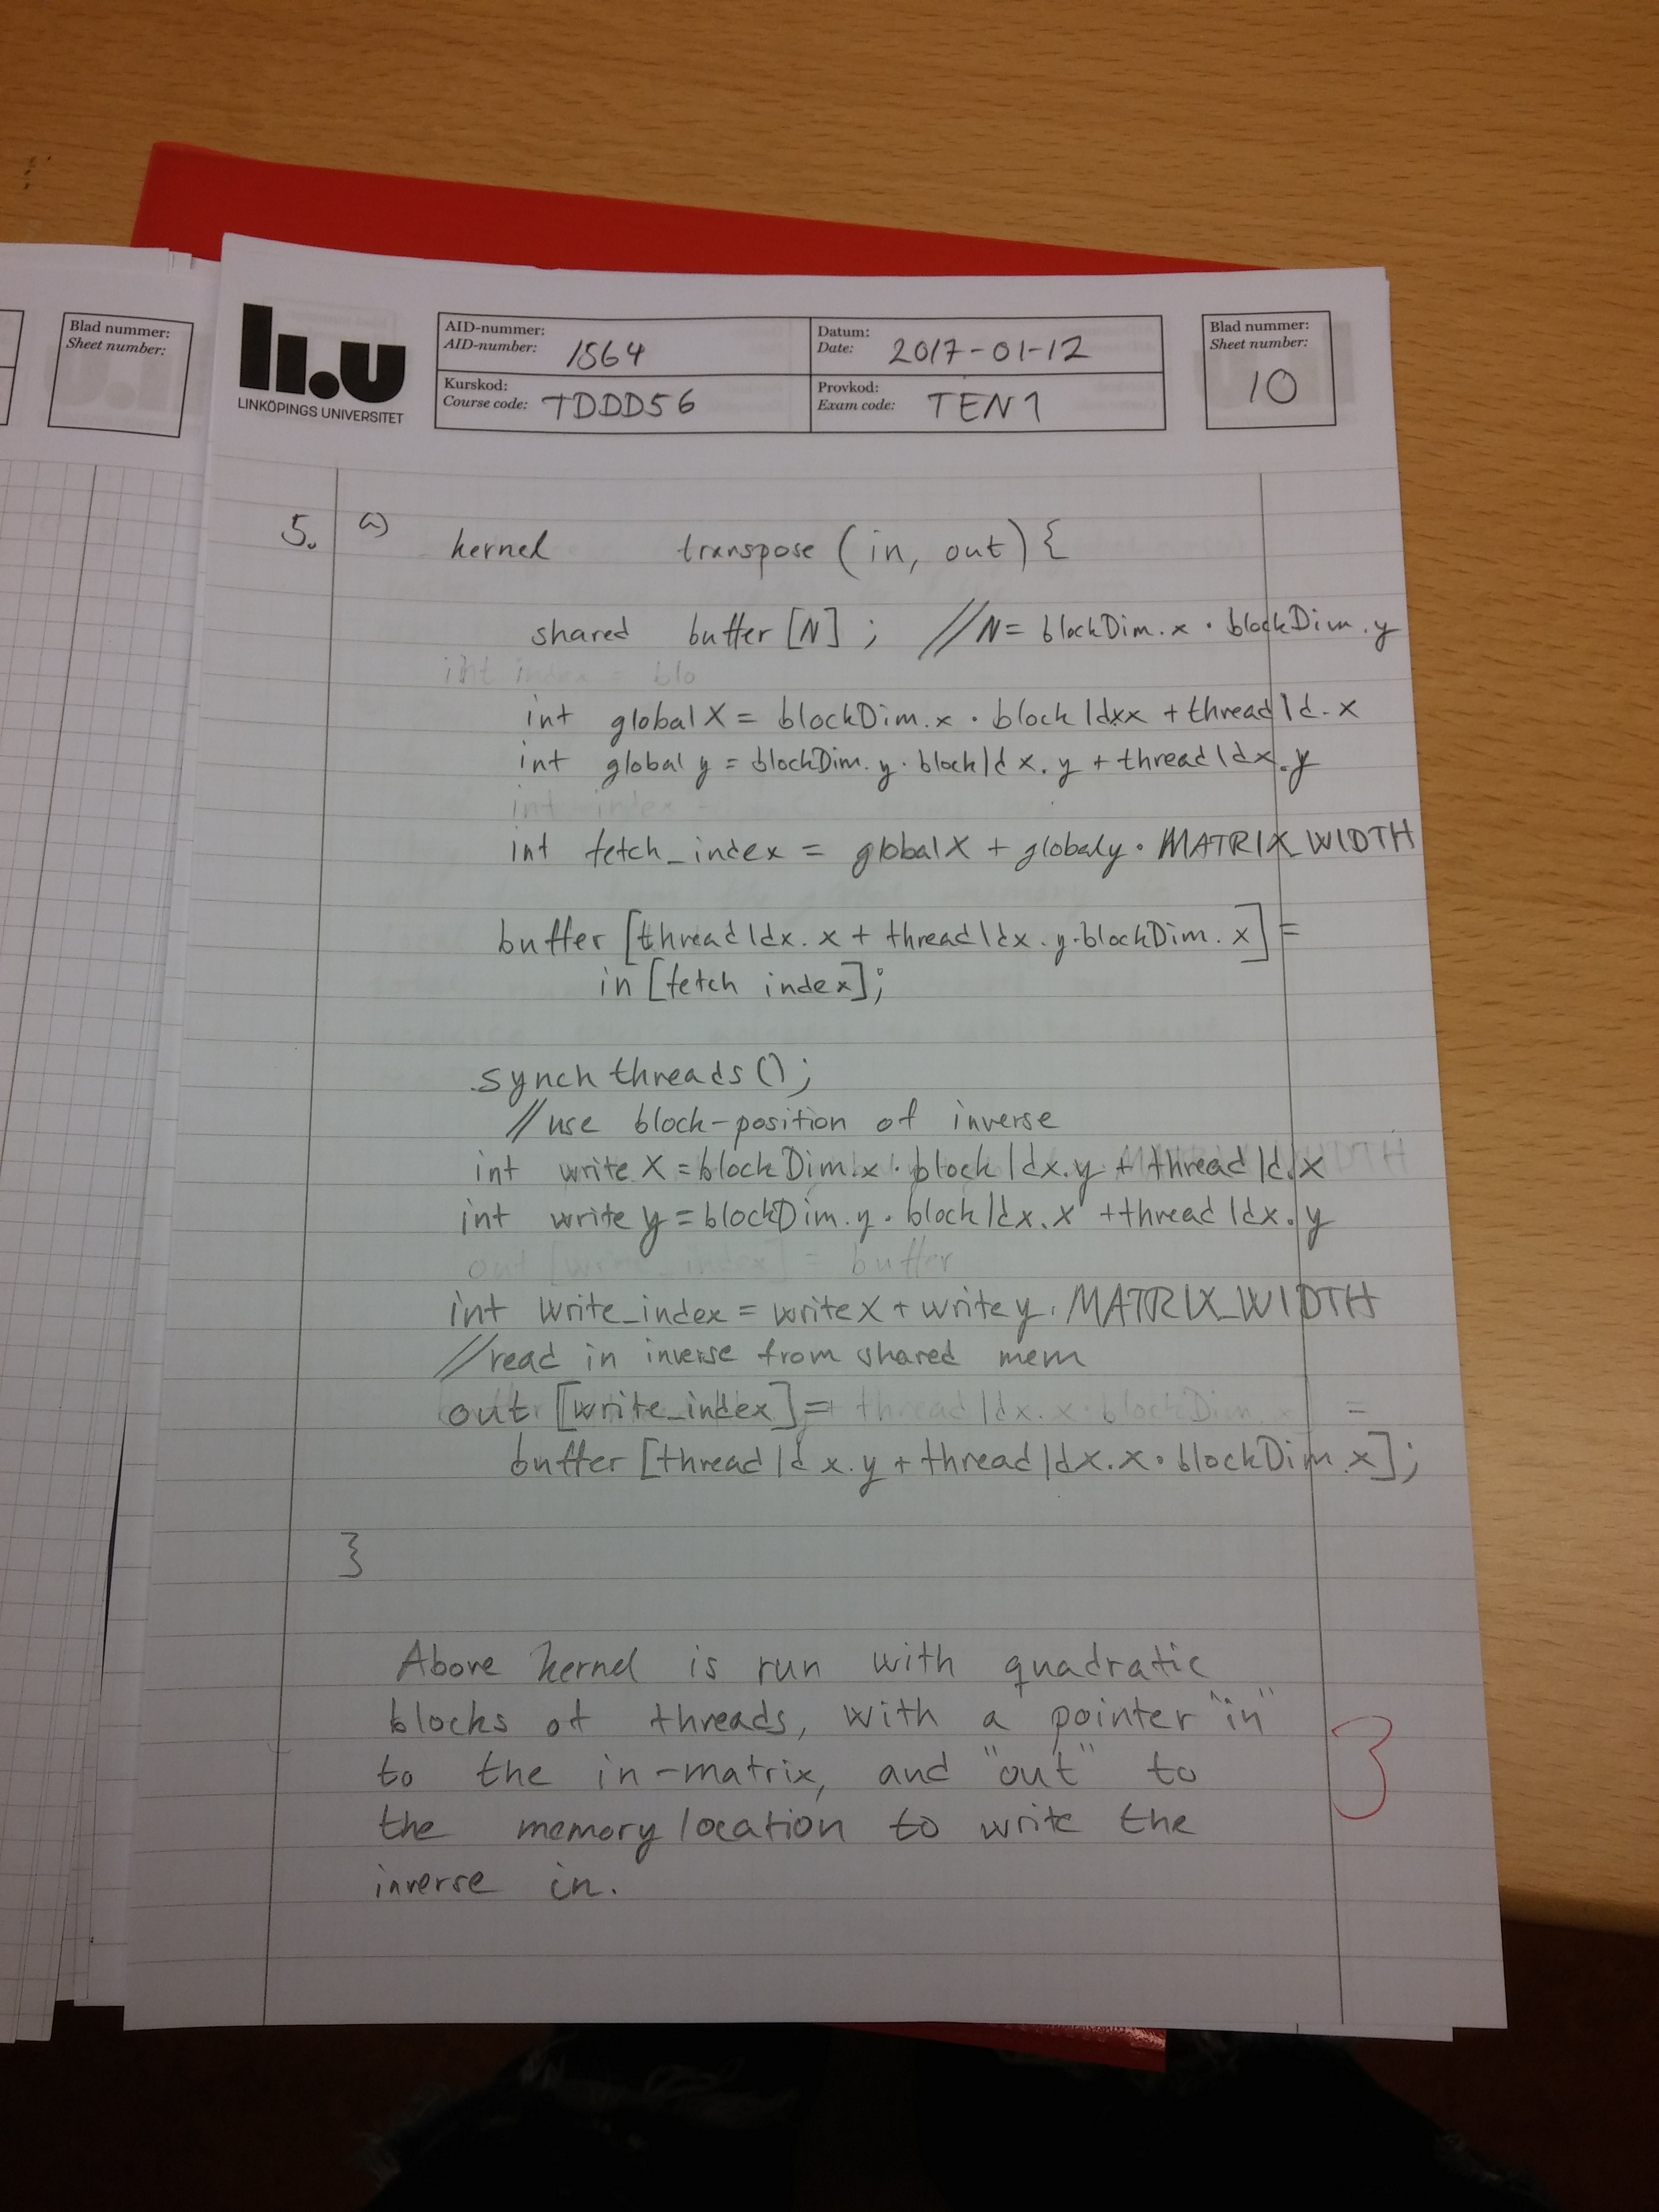 Blad nummer:
Sheet number:
li.u
LINKÖPINGS UNIVERSITET
AID-nummer:
AID-number: 1564
Datum:
Date: 2017-01-12
Kurskod:
Course code: TDDD56
Provkod:
Exam code: TEN1
Blad nummer:
Sheet number:
10
5. a) kernel transpose (in, out) {
shared buffer [N] ; // N = blockDim.x · blockDim.y
int index = blo
int globalX = blockDim.x · blockIdxx + threadId.x
int globaly = blockDim.y · blockIdx.y + threadIdx.y
int index
int fetch_index = globalX + globaly · MATRIX_WIDTH
buffer [threadIdx.x + threadIdx.y·blockDim.x] =
in [fetch index];
synch threads();
//use block-position of inverse
int writeX = blockDim.x · blockIdx.y + threadId.x
int writey = blockDim.y · blockIdx.x + threadIdx.y
out [write_index] = buffer
int write_index = writeX + writey · MATRIX_WIDTH
//read in inverse from shared mem
out [write_index] = threadIdx.x · blockDim. =
buffer [threadIdx.y + threadIdx.x · blockDim.x];
}
Above kernel is run with quadratic
blocks of threads, with a pointer "in"
to the in-matrix, and "out" to
the memory location to write the
inverse in.
3